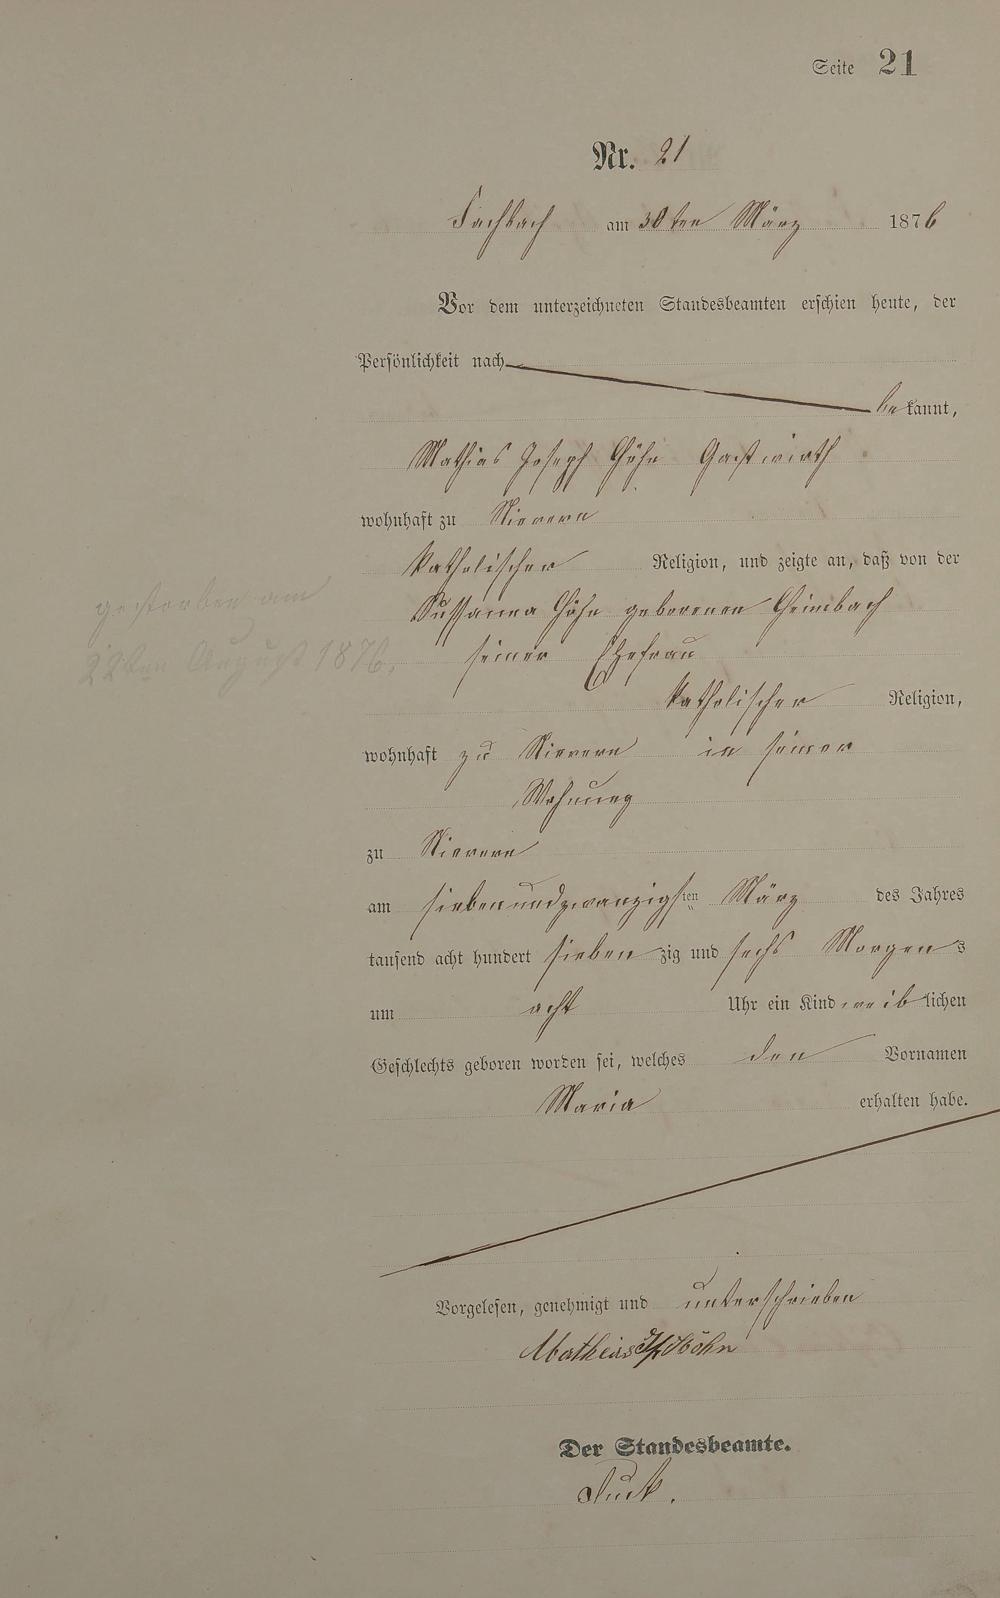 Seite 21
Nr. 21
Fachbach am 30ten März 1876
Vor dem unterzeichneten Standesbeamten erschien heute, der
Persönlichkeit nach
bekannt,
Mathias Joseph Höhn Gastwirth
wohnhaft zu Nievern
katholischer Religion, und zeigte an, daß von der
Sussanna Höhn geborenen Heimbach
seiner Ehefrau
katholischer Religion,
wohnhaft zu Nievern in seiner
Wohnung
zu Nievern
am siebenundzwanzigsten März des Jahres
tausend acht hundert siebenzig und sechs Morgens
um acht Uhr ein Kind weiblichen
Geschlechts geboren worden sei, welches den Vornamen
Maria erhalten habe.
gestorben am
22ten August 1876.
Vorgelesen, genehmigt und unterschrieben
Mathias Höhn
Der Standesbeamte.